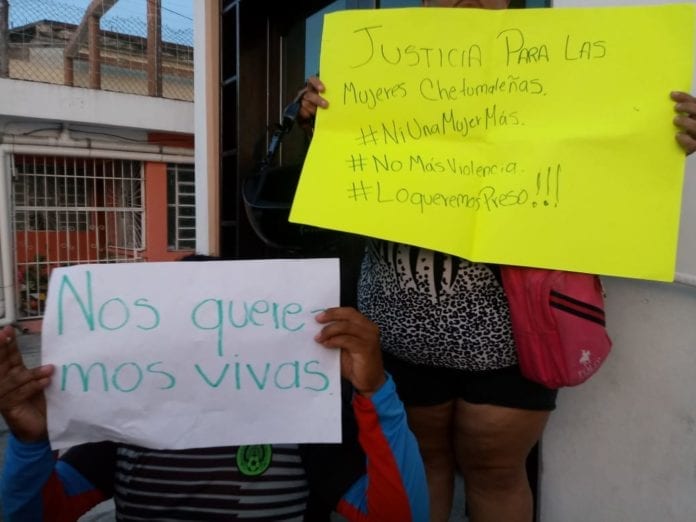 Justicia Para Las
Mujeres Chetumaleñas.
#NiUnaMujerMás.
#NoMásViolencia.
#LoqueremosPreso!!!
Nos quere-
mos vivas